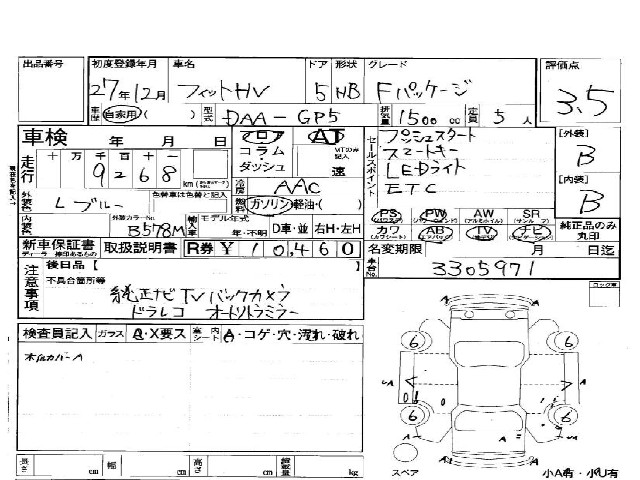 出品番号 初度登録年月 車名 ドア 形状 グレード 評価点
27年12月 フィットHV 5 HB Fパッケージ 3.5
車歴 自家用 ( ) 型式 DAA-GP5 排気量 1500 cc 定員 5 人
車検 年 月 日 フロア AT セールスポイント プッシュスタート [外装]
コラム・ダッシュ MTのみ記入 速 スマートキー B
走行 十 万 千 百 十 一 LEDライト
9268 km 冷房 AAC ETC [内装]
外装色 Lブルー 色替車は色替と記入 燃料 ガソリン・軽油( ) B
PS PW AW SR
内装色 外装カラーNo. B578M 輸入車 モデル年式 年・不明 D車・並 右H・左H カワ AB TV ナビ 純正品のみ丸印
新車保証書 取扱説明書 R券 ¥ 10,460 名変期限 月 日迄
ディーラー捺印あるもの
注意事項 後日品【 】 車台No. 3305971
不具合箇所等
純正ナビTVバックカメラ
ドラレコ オートリトラミラー
検査員記入 ガラス A・X要ス 室内シート A・コゲ・穴・汚れ・破れ
A
A
6 6
A A
6 6
A A
長さ cm 幅 cm 高さ cm 総重量 kg スペア 小A有・小U有